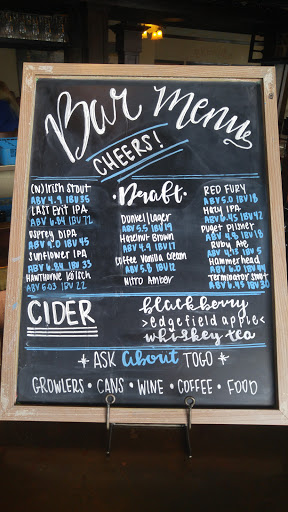 Bar Menu
CHEERS!
(N)Irish Stout
ABV 4.9 IBU 35
Last Exit IPA
ABV 6.84 IBU 72
Osprey DIPA
ABV 9.0 IBU 45
Sunflower IPA
ABV 6.84 IBU 33
Hawthorne Kölsch
ABV 5.03 IBU 22
•Draft•
Dunkel/Lager
ABV 5.5 IBU 19
Hazelnut Brown
ABV 4.9 IBU 17
Coffee Vanilla Cream
ABV 5.8 IBU 12
Nitro Amber
RED FURY
ABV 5.0 IBU 18
Hazy IPA
ABV 6.45 IBU 42
Puget Pilsner
ABV 4.8 IBU 18
Ruby Ale
Hammerhead
Terminator Stout
ABV 6.45 IBU 30
CIDER
blackberry
>edgefield apple<
whiskey tea
* ASK About TOGO *
GROWLERS • CANS • WINE • COFFEE • FOOD